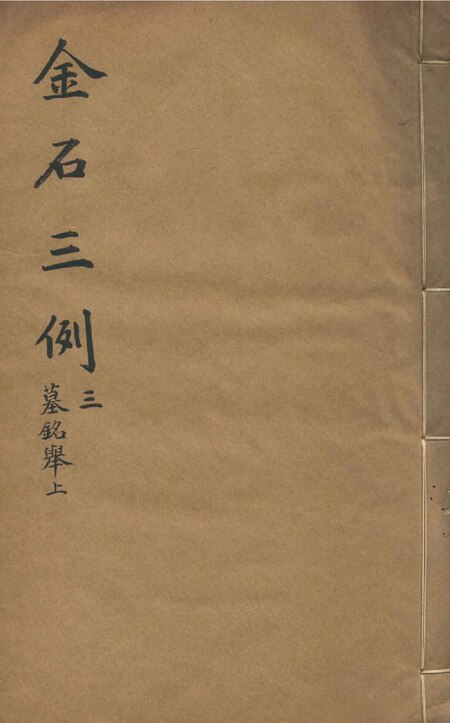 金石三例
三
墓銘舉上